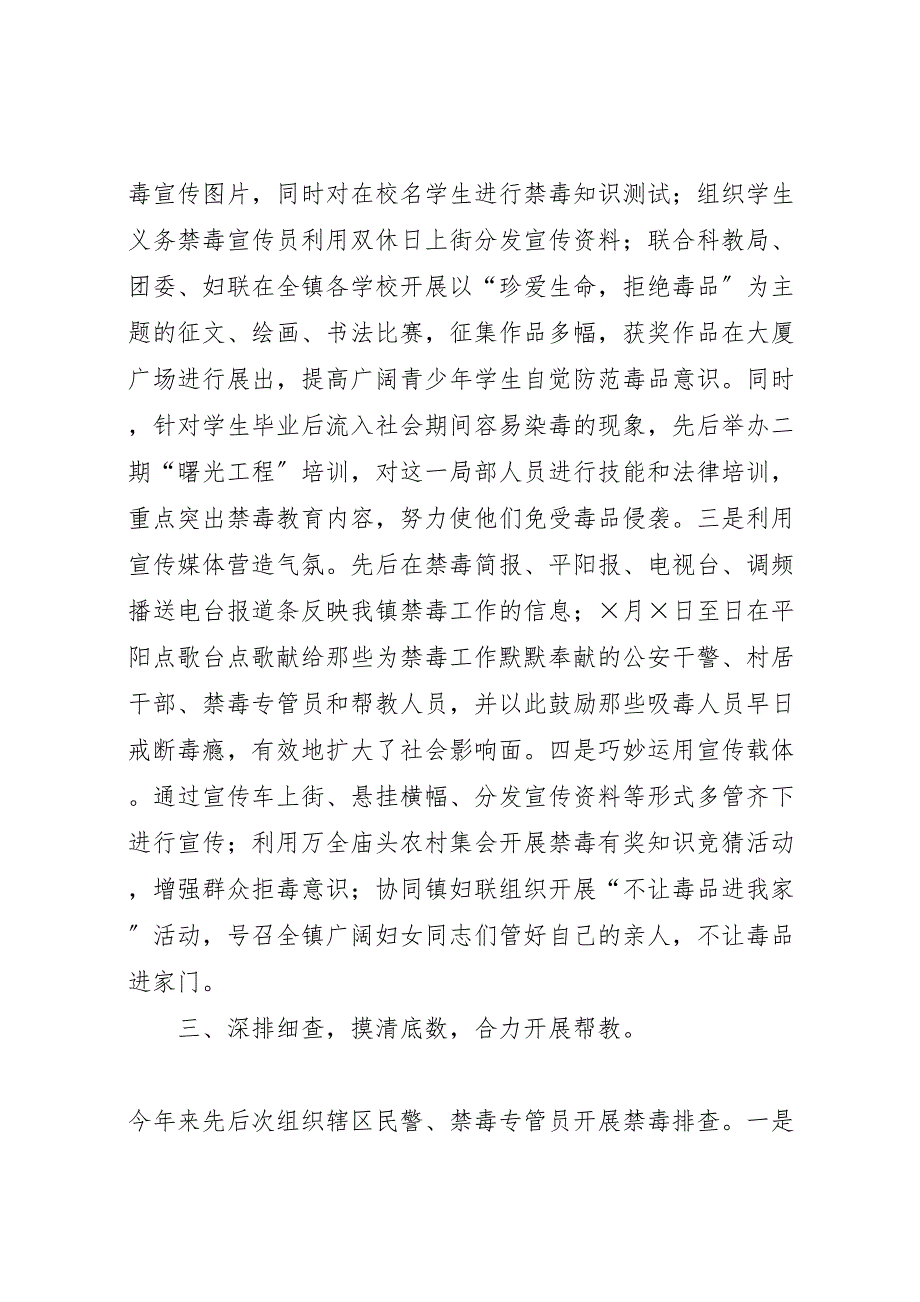 毒宣传图片，同时对在校名学生进行禁毒知识测试；组织学生
义务禁毒宣传员利用双休日上街分发宣传资料；联合科教局、
团委、妇联在全镇各学校开展以“珍爱生命，拒绝毒品〞为主
题的征文、绘画、书法比赛，征集作品多幅，获奖作品在大厦
广场进行展出，提高广阔青少年学生自觉防范毒品意识。同时
，针对学生毕业后流入社会期间容易染毒的现象，先后举办二
期“曙光工程〞培训，对这一局部人员进行技能和法律培训，
重点突出禁毒教育内容，努力使他们免受毒品侵袭。三是利用
宣传媒体营造气氛。先后在禁毒简报、平阳报、电视台、调频
播送电台报道条反映我镇禁毒工作的信息；×月×日至日在平
阳点歌台点歌献给那些为禁毒工作默默奉献的公安干警、村居
干部、禁毒专管员和帮教人员，并以此鼓励那些吸毒人员早日
戒断毒瘾，有效地扩大了社会影响面。四是巧妙运用宣传载体
。通过宣传车上街、悬挂横幅、分发宣传资料等形式多管齐下
进行宣传；利用万全庙头农村集会开展禁毒有奖知识竞猜活动
，增强群众拒毒意识；协同镇妇联组织开展“不让毒品进我家
〞活动，号召全镇广阔妇女同志们管好自己的亲人，不让毒品
进家门。
三、深排细查，摸清底数，合力开展帮教。
今年来先后次组织辖区民警、禁毒专管员开展禁毒排查。一是